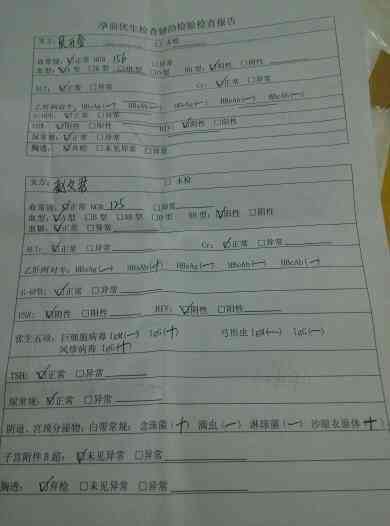 孕前优生检查辅助检验检查报告
男方: □未检
血常规:☑正常 HGB 156 □异常
血型:☑A型 □B型 □AB型 □O型 RH型:☑阳性 □阴性
ALT:☑正常 □异常 Cr:☑正常 □异常
乙肝两对半:HBsAg(—) HBsAb(—) HBeAg(—) HBeAb(—) HBcAb(—)
☑正常 □异常
☑阴性 □阳性 HIV:☑阴性 □阳性
尿常规:☑正常 □异常
胸透:☑弃检 □未见异常 □异常
女方: □未检
血常规:☑正常 HGB 125 □异常
血型:☑A型 □B型 □AB型 □O型 RH型:☑阳性 □阴性
血糖:☑正常 □异常
ALT:☑正常 □异常 Cr:☑正常 □异常
乙肝两对半:HBsAg(—) HBsAb(+) HBeAg(—) HBeAb(—) HBcAb(—)
G-6PD:☑正常 □异常
☑阴性 □阳性 HIV:☑阴性 □阳性
优生五项:巨细胞病毒 IgM(—) IgG(+) 弓形虫 IgM(—) IgG(—)
风疹病毒 IgG(+)
TSH:☑正常 □异常
尿常规:☑正常 □异常
阴道、宫颈分泌物:白带常规:念珠菌(+) 滴虫(—) 淋球菌(—) 沙眼衣原体(+)
子宫附件B超:☑未见异常 □异常
胸透:☑弃检 □未见异常 □异常